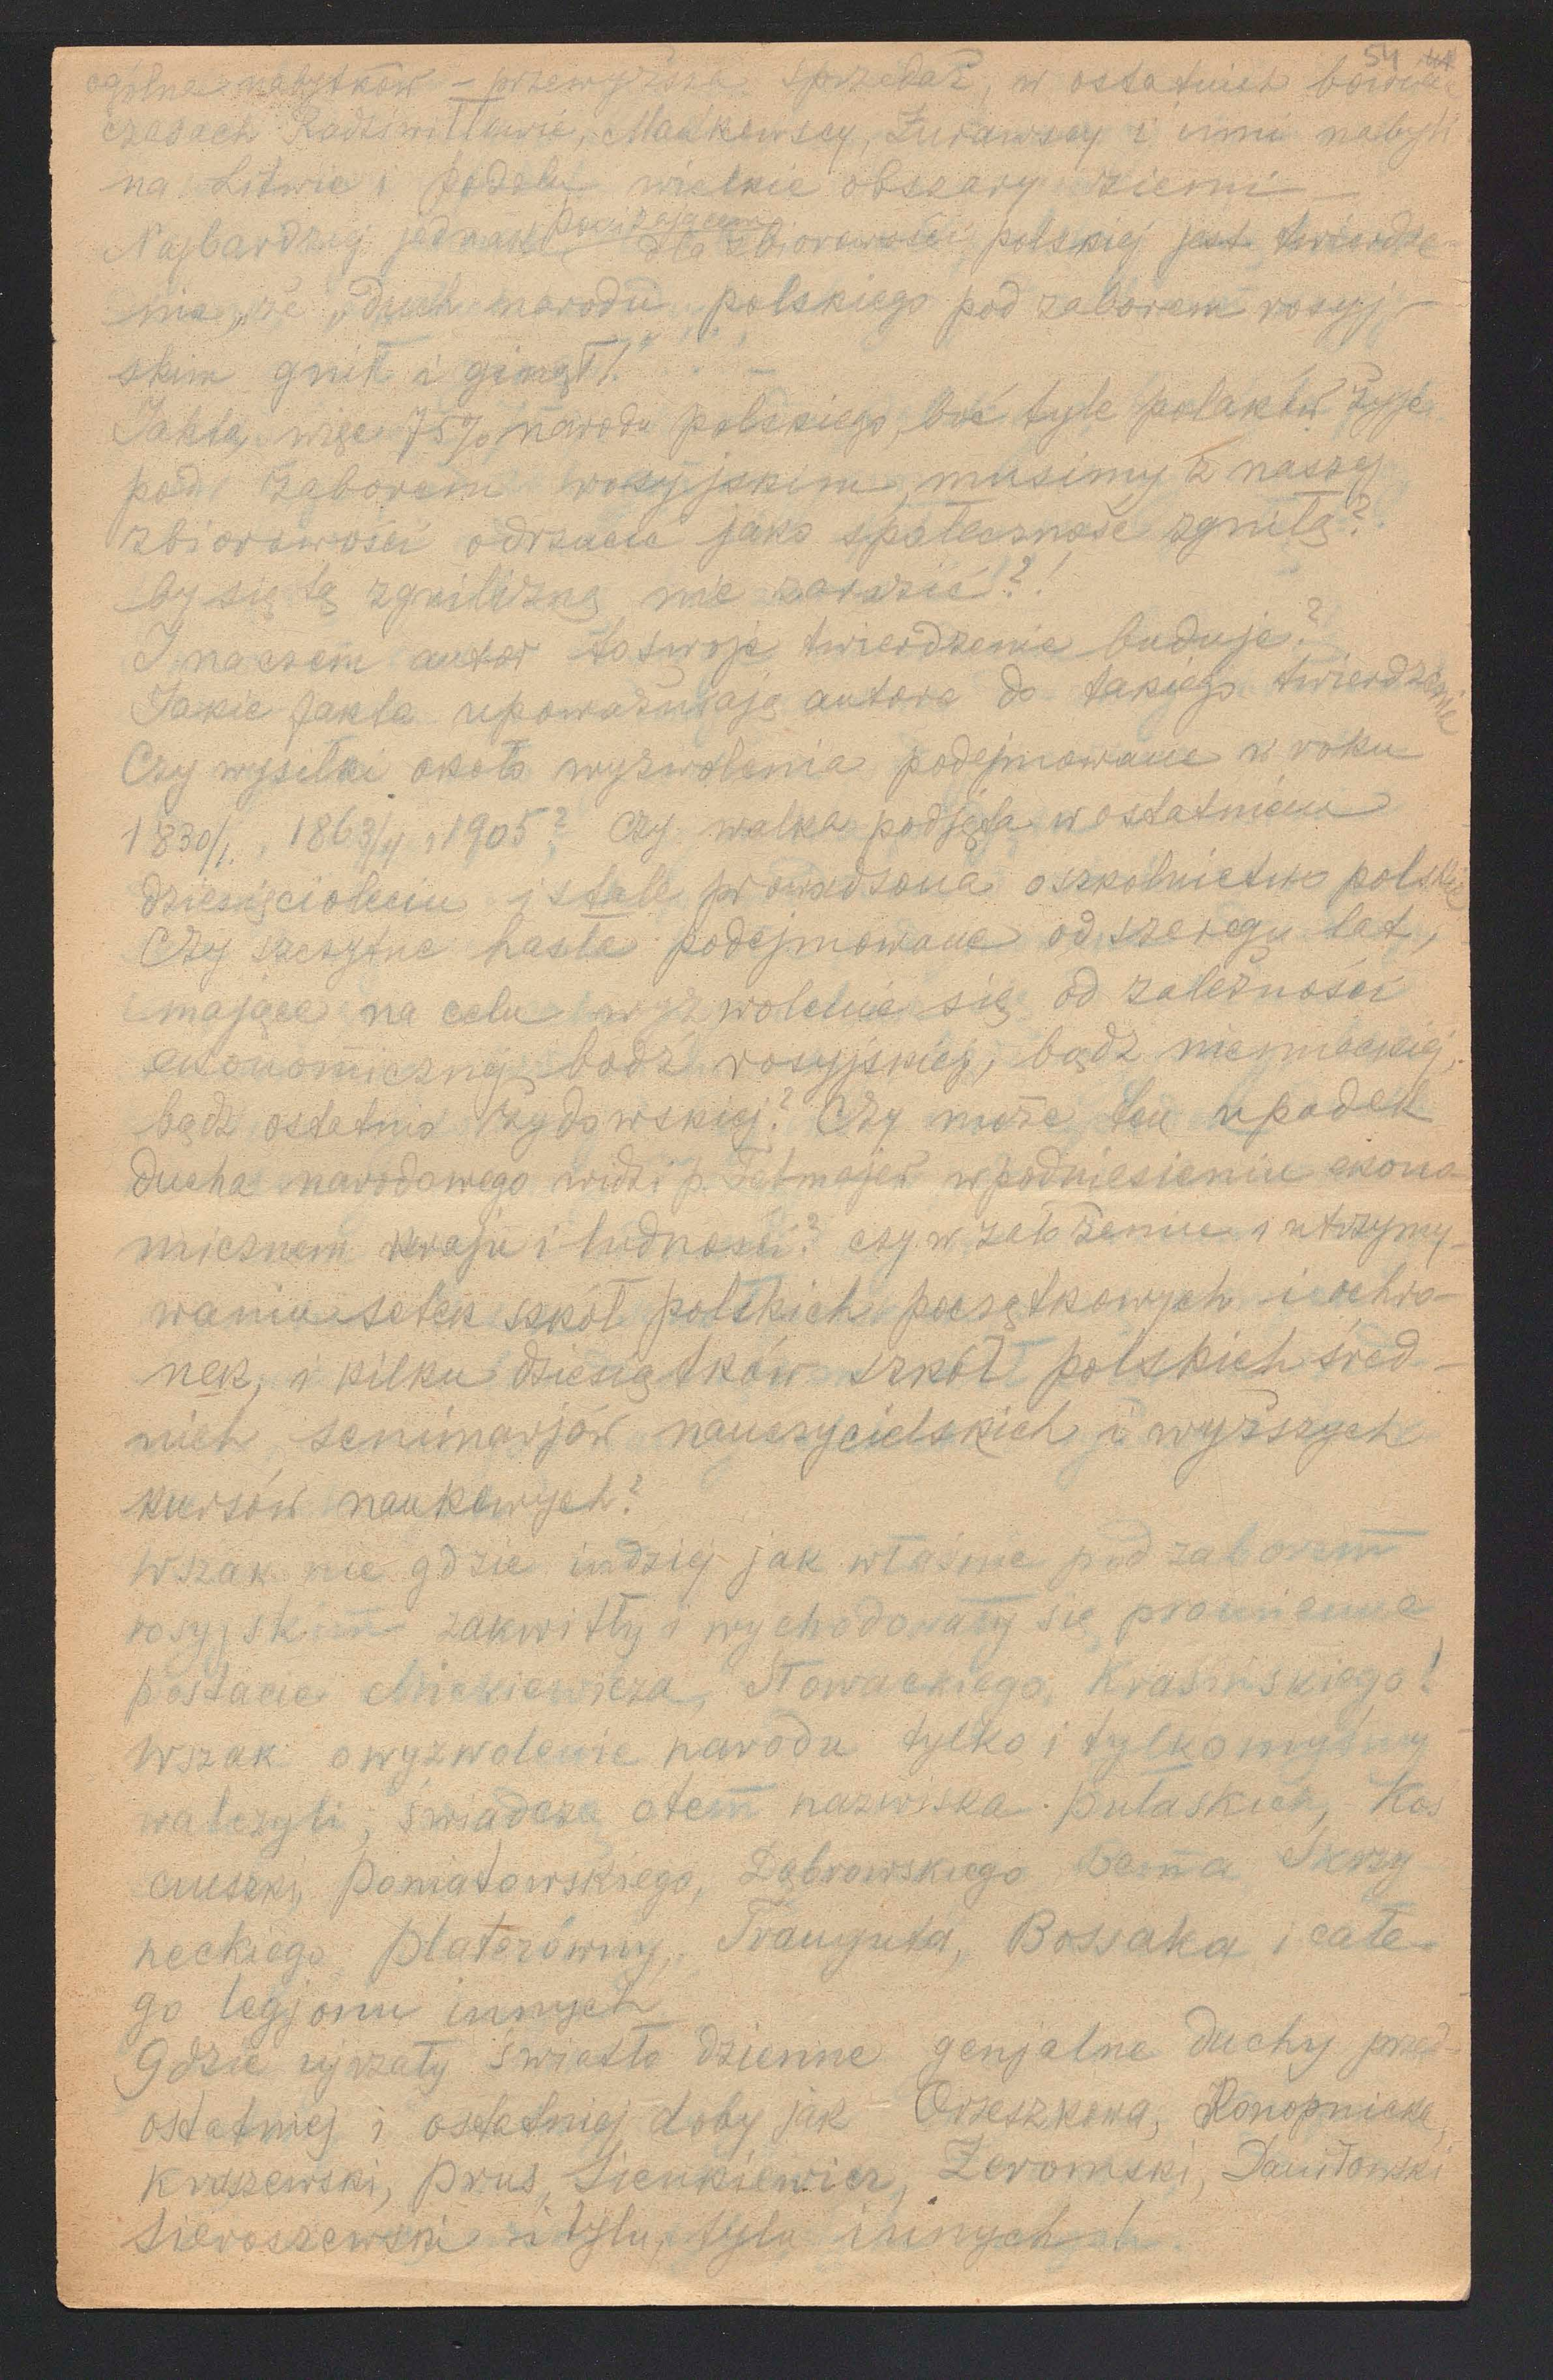 54
ogólna nabytków – przewyższa sprzedaż, w ostatnich bowiem
czasach Radziwiłłowie, Mańkowscy, Żurawscy i inni nabyli
na Litwie i Podolu wielkie obszary ziemi –
Najbardziej jednak poniżającem dla zbiorowości polskiej jest twierdze-
nie, że „duch narodu polskiego pod zaborem rosyj-
skim gnił i ginął!"
Jakto, więc 75% narodu polskiego, boć tyle polaków żyje
pod zaborem rosyjskim, musimy z naszej
zbiorowości odrzucić jako społeczność zgniłą?
by się tą zgnilizną nie zarazić?!
I na czem autor to swoje twierdzenie buduje?
Jakie fakta upoważniają autora do takiego twierdzenia
Czy wysiłki około wyzwolenia podejmowane w roku
1830/1, 1863/4 i 1905? Czy walka podjęta w ostatniem
dziesięcioleciu i stale prowadzona o szkolnictwo polskie
Czy szczytne hasła podejmowane od szeregu lat,
mające na celu wyzwolenie się od zależności
ekonomicznej bądź rosyjskiej, bądź niemieckiej,
bądź ostatnio żydowskiej? Czy może ten upadek
ducha narodowego widzi p. Tetmajer w podniesieniu ekono-
micznem kraju i ludności? czy w założeniu i utrzymy-
waniu setek szkół polskich początkowych i ochro-
nek, i kilku dziesiątków szkół polskich śred-
nich seminarjów nauczycielskich i wyższych
kursów naukowych?
Wszak nie gdzie indziej jak właśnie pod zaborem
rosyjskim zakwitły i wychodowały się promienne
postacie Mickiewicza, Słowackiego, Krasińskiego!
Wszak o wyzwolenie narodu tylko i tylko myśmy
walczyli, świadczą o tem nazwiska Pułaskich, Kos
ciuszki, Poniatowskiego, Dąbrowskiego Bema Skrzy
neckiego Platerówny, Trauguta, Bossaka i całe-
go legjonu innych
Gdzie ujrzały światło dzienne genjalne duchy przed-
ostatniej i ostatniej doby jak Orzeszkowa, Konopnicka,
Kraszewski, Prus, Sienkiewicz, Żeromski, Daniłowski
Sieroszewski i tylu, tylu innych!